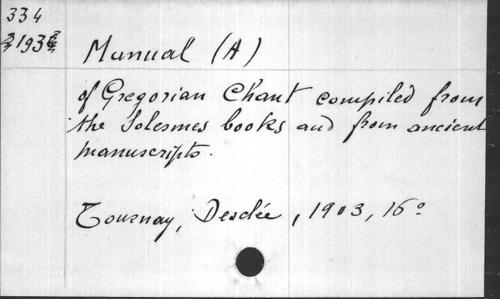 334
Manual (A)
of Gregorian Chant compiled from
the Solesmes books and from ancient
manuscripts.
Tournay, Desclée, 1903, 16º